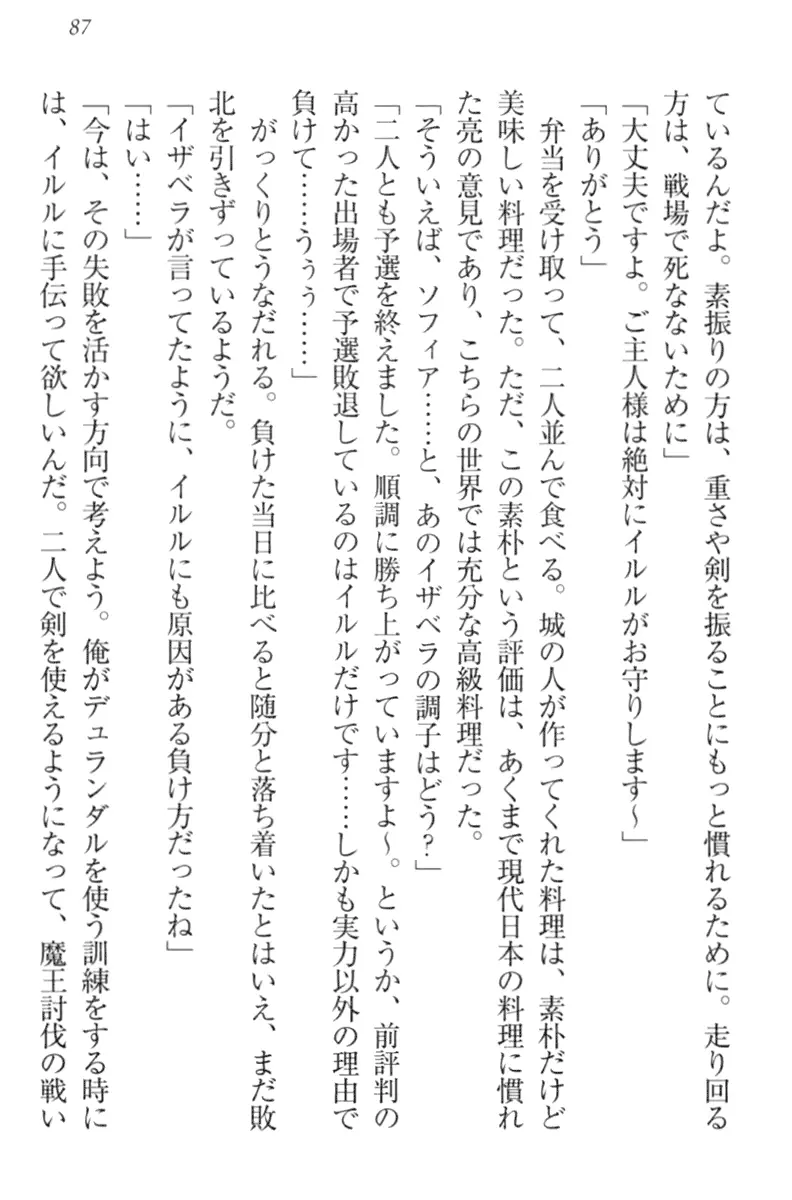 87
ているんだよ。素振りの方は、重さや剣を振ることにもっと慣れるために。走り回る
方は、戦場で死なないために」
「大丈夫ですよ。ご主人様は絶対にイルルがお守りします～」
「ありがとう」
　弁当を受け取って、二人並んで食べる。城の人が作ってくれた料理は、素朴だけど
美味しい料理だった。ただ、この素朴という評価は、あくまで現代日本の料理に慣れ
た亮の意見であり、こちらの世界では充分な高級料理だった。
「そういえば、ソフィア……と、あのイザベラの調子はどう?」
「二人とも予選を終えました。順調に勝ち上がっていますよ～。というか、前評判の
高かった出場者で予選敗退しているのはイルルだけです……しかも実力以外の理由で
負けて……うぅぅ……」
　がっくりとうなだれる。負けた当日に比べると随分と落ち着いたとはいえ、まだ敗
北を引きずっているようだ。
「イザベラが言ってたように、イルルにも原因がある負け方だったね」
「はい……」
「今は、その失敗を活かす方向で考えよう。俺がデュランダルを使う訓練をする時に
は、イルルに手伝って欲しいんだ。二人で剣を使えるようになって、魔王討伐の戦い